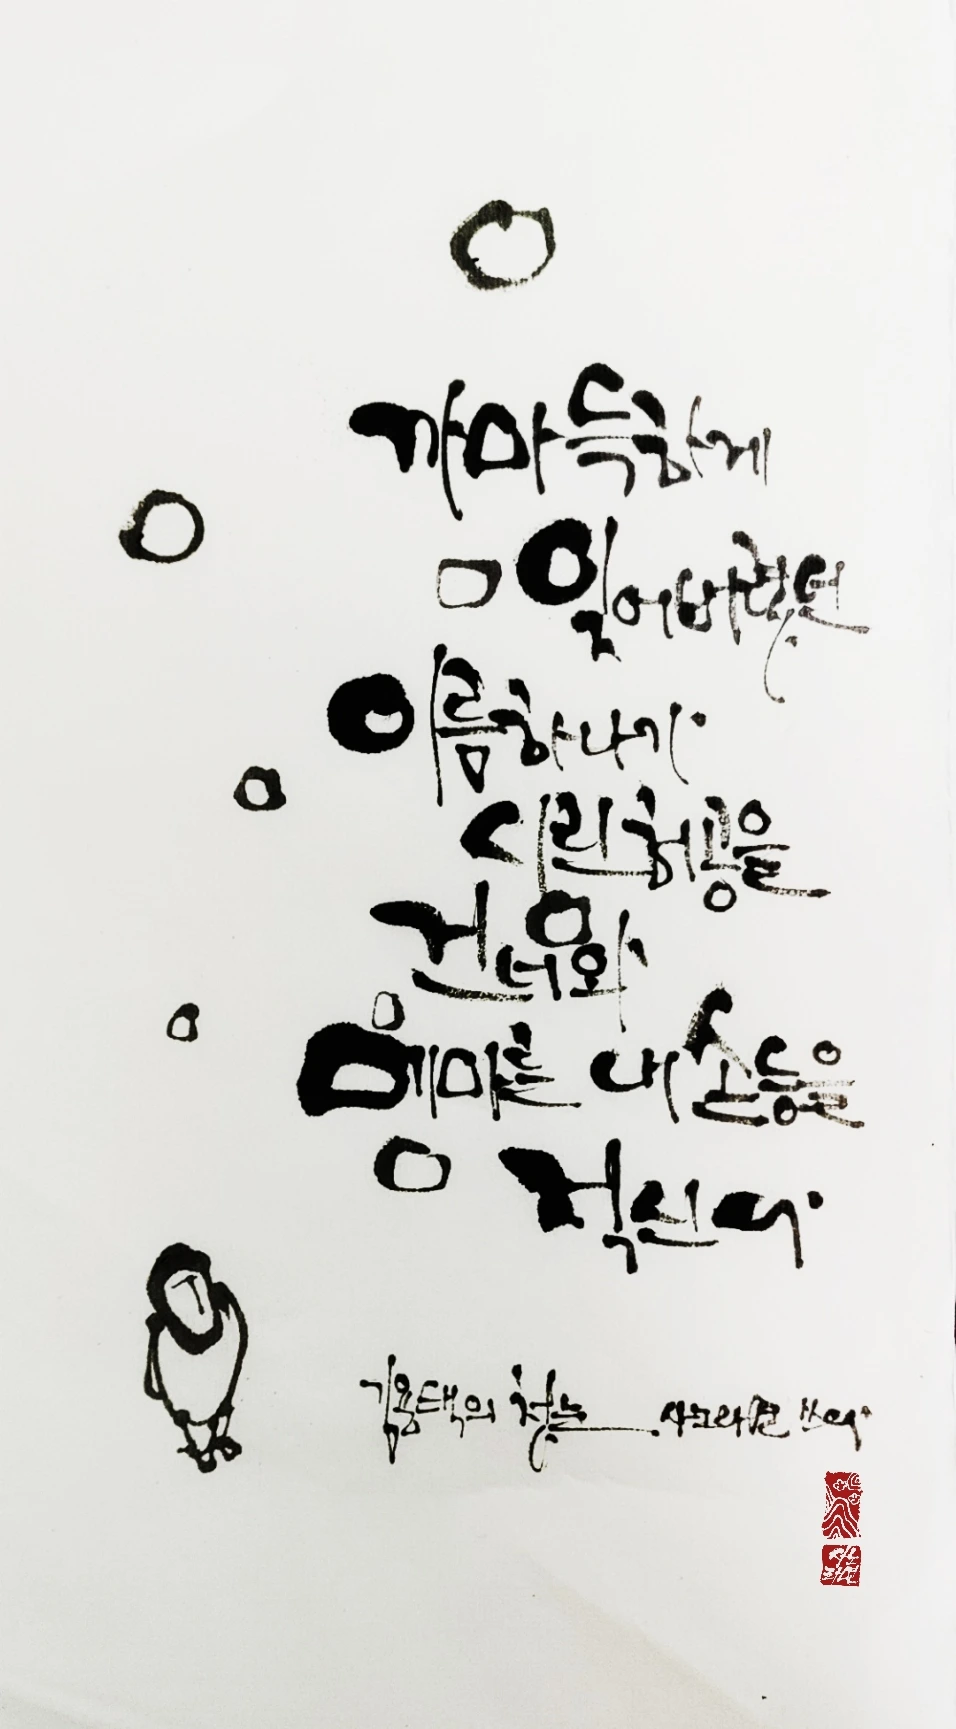 까마득하게
잊어버렸던
이름하나가
시린허공을
건너와
메마른 내 손등을
적신다
김용택의 첫눈 쓰다